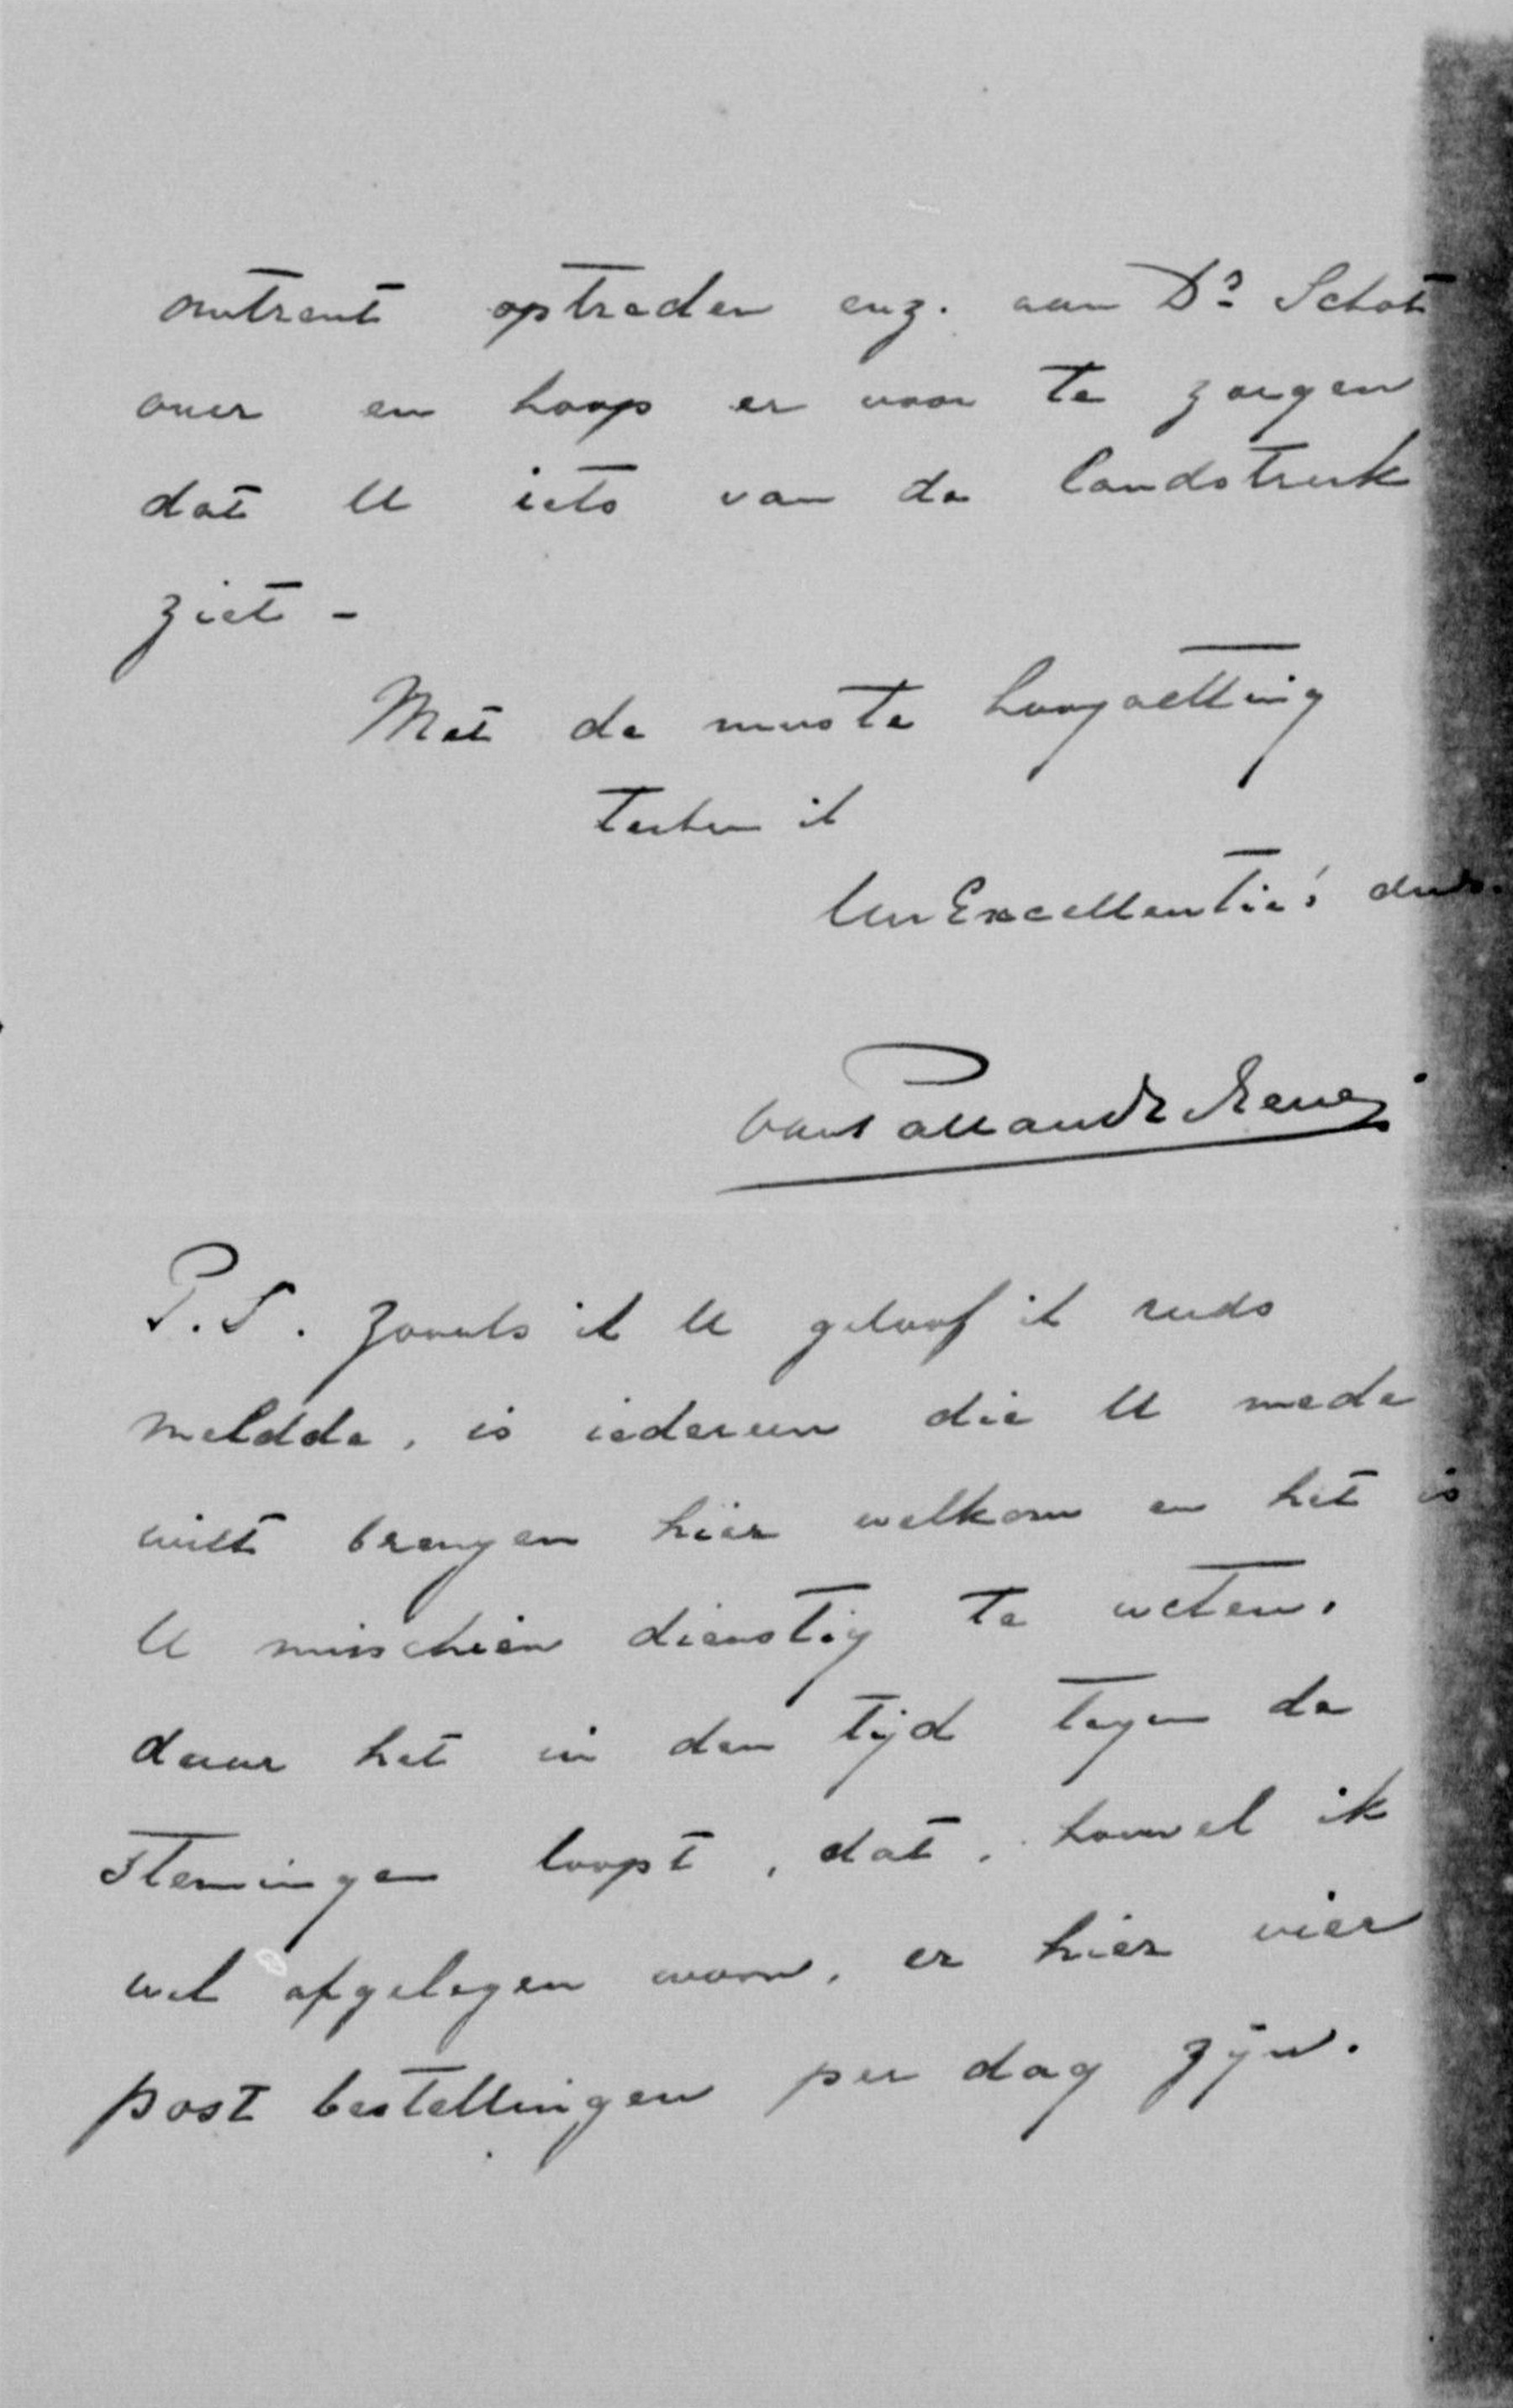 omtrent optreden enz. aan Ds Schot
over en hoop er voor te zorgen
dat U iets van de landstreek
ziet -
Met de meeste hoogachting
teeken ik
Uw Excellentie's dw.
van Pallandt
P.S. Zooals ik U geloof ik reeds
meldde, is iedereen die U mede
wilt brengen hier welkom en het is
U misschien dienstig te weten,
daar het in den tijd tegen de
stemmingen loopt, dat, hoewel ik
wel afgelegen woon, er hier vier
post bestellingen per dag zijn.